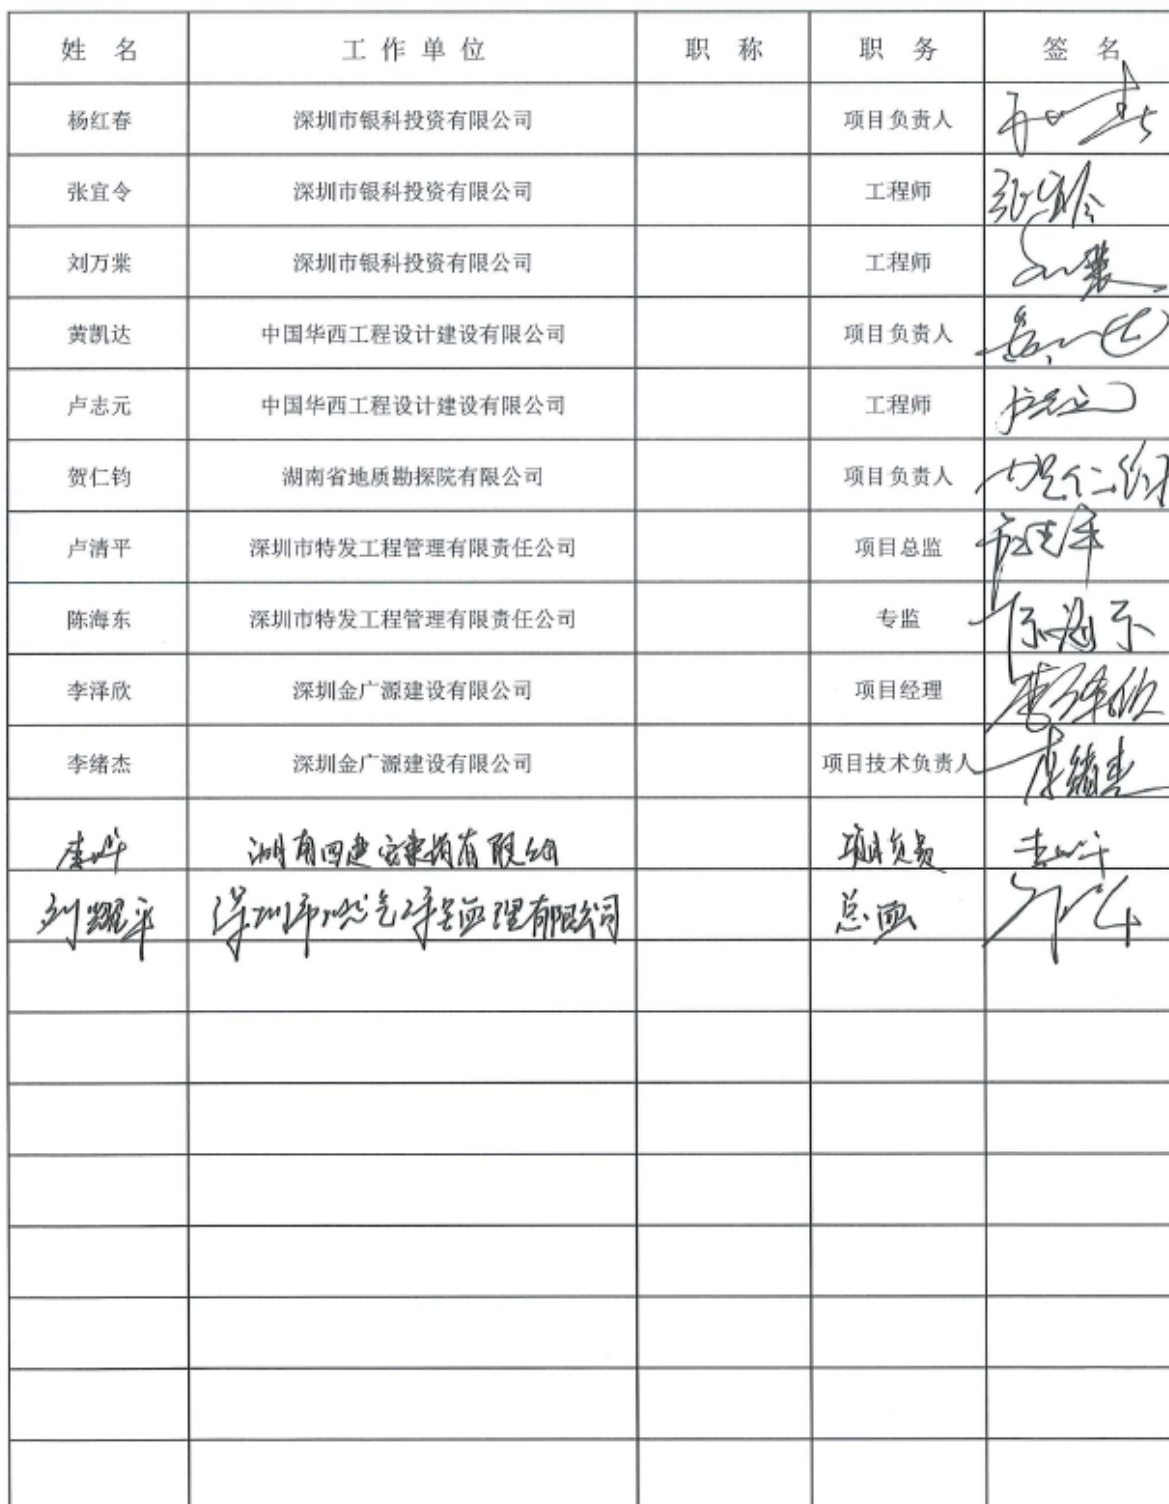 姓 名 工 作 单 位 职 称 职 务 签 名
杨红春 深圳市银科投资有限公司 项目负责人
张宜令 深圳市银科投资有限公司 工程师 张宜令
刘万棠 深圳市银科投资有限公司 工程师
黄凯达 中国华西工程设计建设有限公司 项目负责人
卢志元 中国华西工程设计建设有限公司 工程师
贺仁钧 湖南省地质勘探院有限公司 项目负责人 贺仁钧
卢清平 深圳市特发工程管理有限责任公司 项目总监
陈海东 深圳市特发工程管理有限责任公司 专监 陈海东
李泽欣 深圳金广源建设有限公司 项目经理 李泽欣
李绪杰 深圳金广源建设有限公司 项目技术负责人 李绪杰
刘耀平 总监